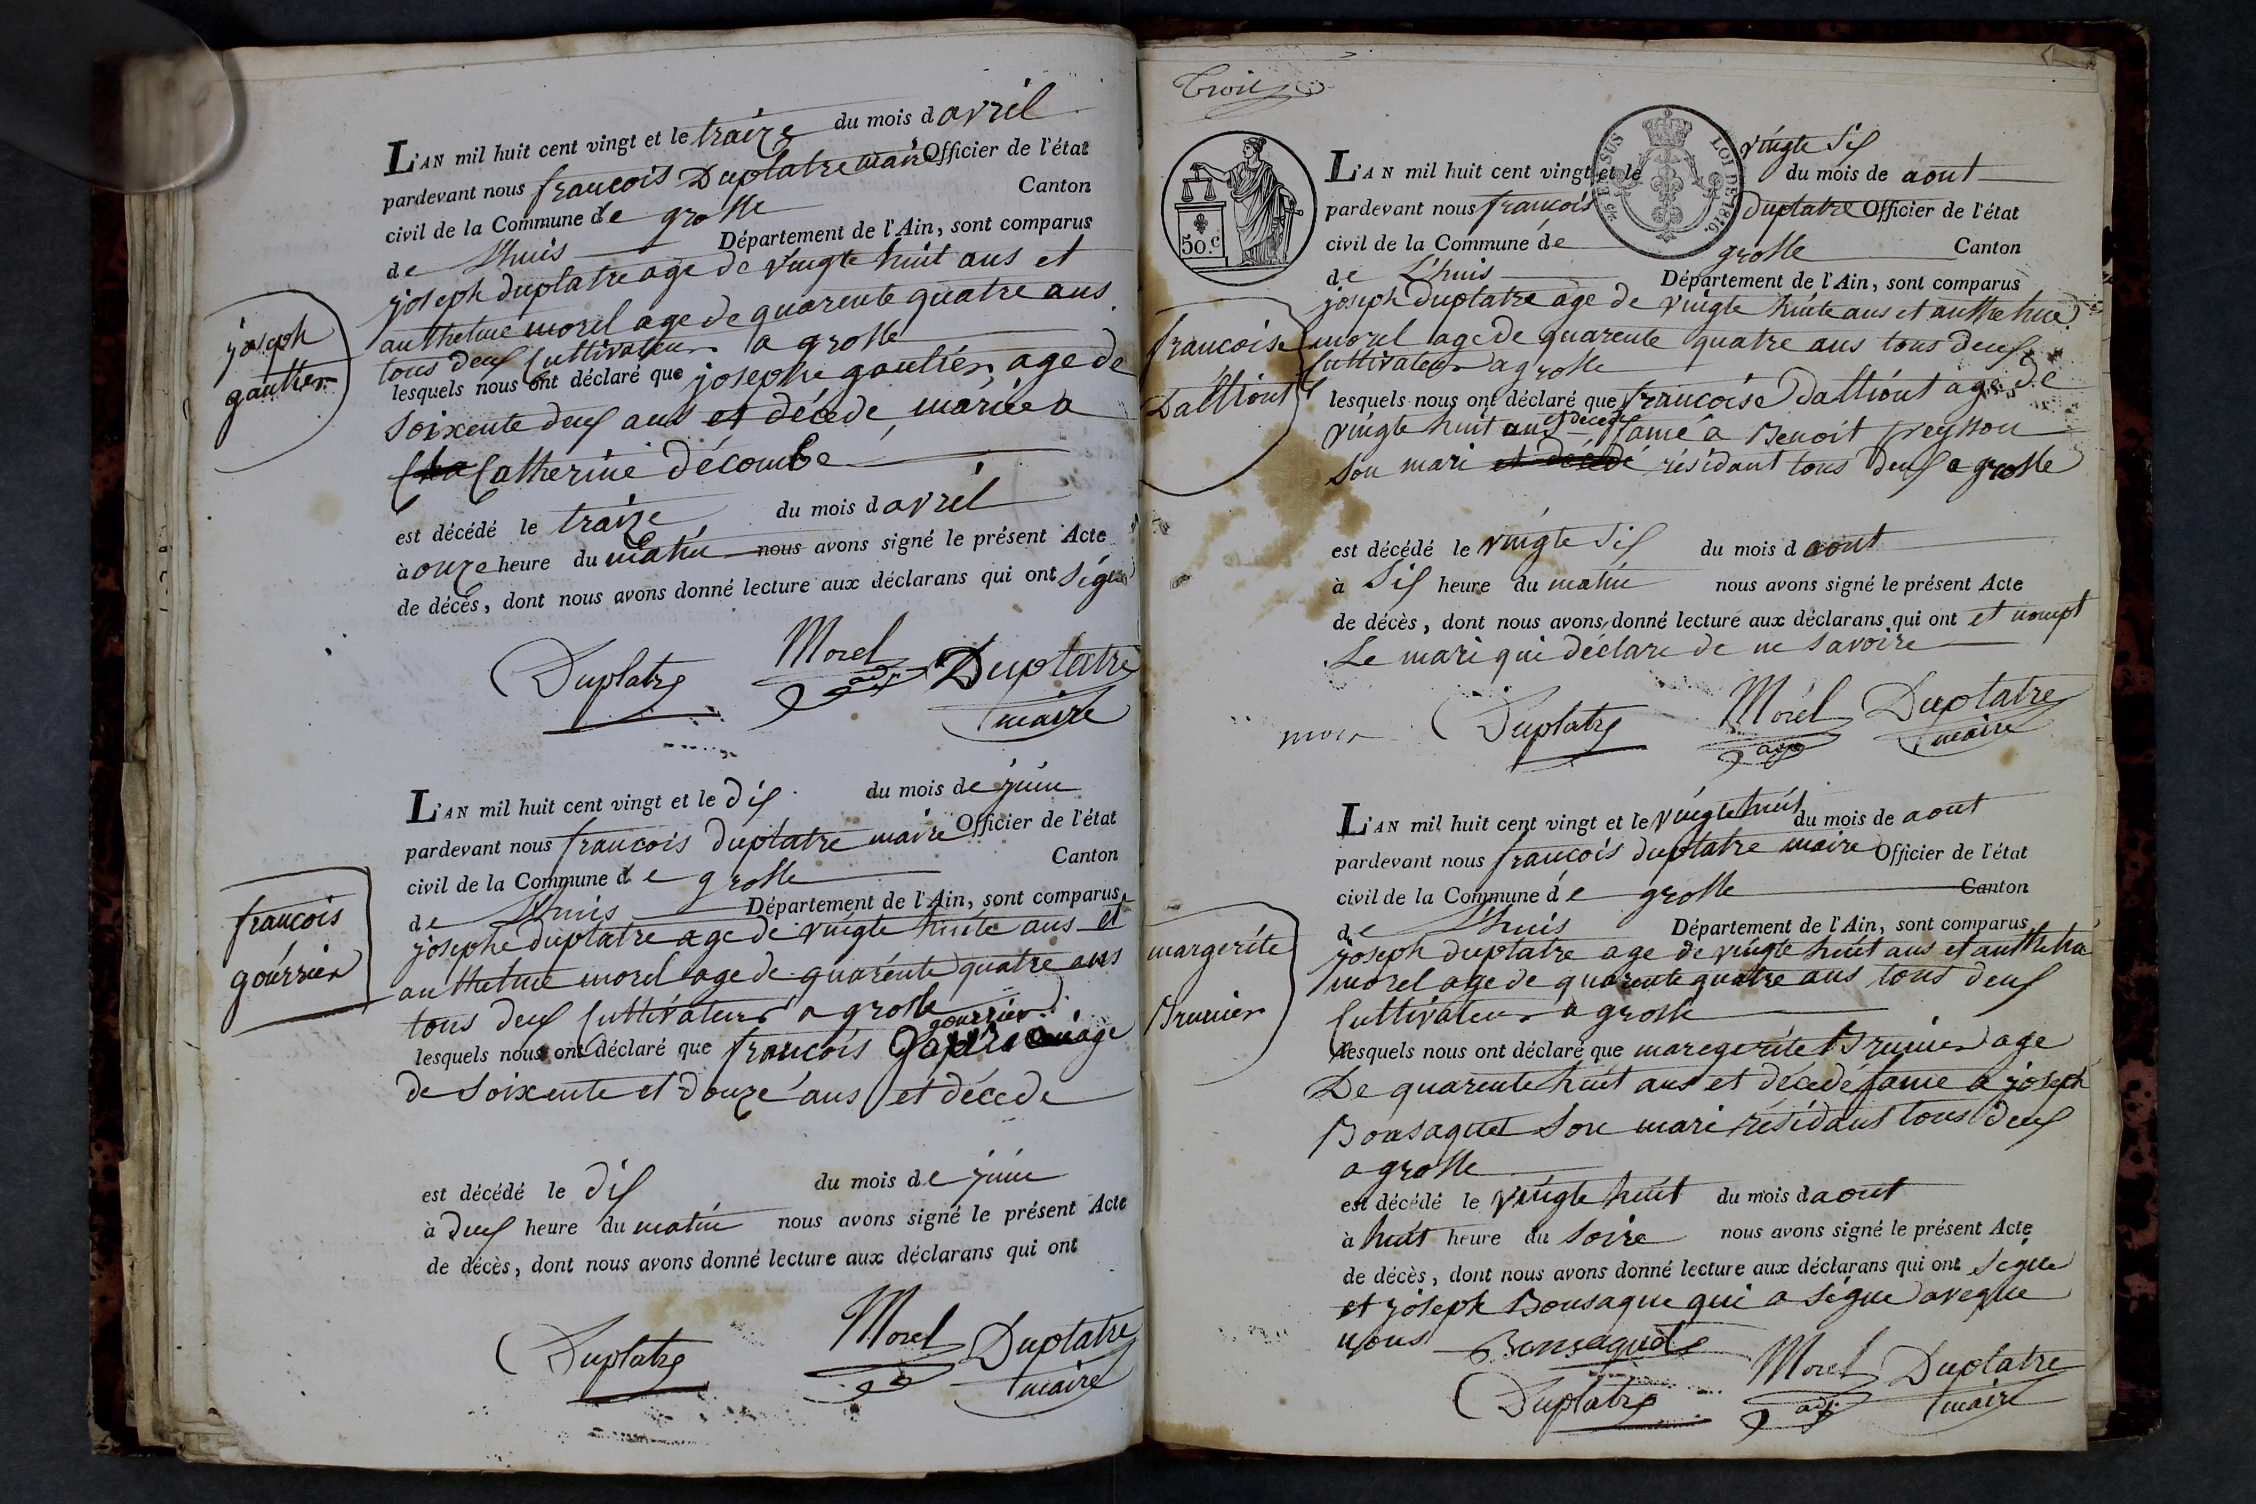 L'AN mil huit cent vingt et le traize du mois d avril
pardevant nous francois Duplatre maire Officier de l'état
civil de la Commune de grolle Canton
de Lhuis Département de l'Ain, sont comparus
joseph duplatre age de vingte huit ans et
anthelme morel age de quarente quatre ans
tous deux Cultivateur a grolle
lesquels nous ont déclaré que josephe gautier age de
soixente deux ans et décede, mariée a
Catherine décombe
est décédé le traize du mois d avril
à onze heure du matin nous avons signé le présent Acte
de décès, dont nous avons donné lecture aux déclarans qui ont signe
Duplatre Morel adj Duplatre
maire
joseph
gautier
L'AN mil huit cent vingt et le dix du mois de juin
pardevant nous francois duplatre maire Officier de l'état
civil de la Commune de grolle Canton
de Lhuis Département de l'Ain, sont comparus
josephe duplatre age de vingte huite ans et
anthelme morel age de quarente quatre ans
tous deux Cultivateur a grolle
gourrier
lesquels nous ont déclaré que francois age
de soixente et douze ans et décede
est décédé le dix du mois de juin
à deux heure du matin nous avons signé le présent Acte
de décès, dont nous avons donné lecture aux déclarans qui ont
Duplatre Morel Duplatre
maire
francois
gourrier
Trois
50.c
25 EN SUS LOI DE 1816.
L'AN mil huit cent vingt et le vingte six du mois de aout
pardevant nous francois duplatre Officier de l'état
civil de la Commune de grolle Canton
de Lhuis Département de l'Ain, sont comparus
joseph duplatre age de vingte huite ans et anthelme
morel age de quarente quatre ans tous deux
Cultivateur a grolle
lesquels nous ont déclaré que francoise Dalliout age de
vingte huit ans et décedé fame a Benoit preysson
son mari et décédé résidant tous deux a grolle
est décédé le vingte six du mois d aout
à six heure du matin nous avons signé le présent Acte
de décès, dont nous avons donné lecture aux déclarans qui ont et nompt
Le mari qui déclare de ne savoire
Duplatre Morel adj Duplatre
maire
francoise
Dalliout
L'AN mil huit cent vingt et le vingte huit du mois de aout
pardevant nous francois duplatre maire Officier de l'état
civil de la Commune de grolle Canton
de Lhuis Département de l'Ain, sont comparus
joseph duplatre age de vingte huit ans et anthelme
morel age de quarente quatre ans tous deux
Cultivateur a grolle
lesquels nous ont déclaré que maregerite Brunier age
De quarente huit ans et décedé fame a joseph
Bonsaquet son mari résidant tous deux
a grolle
est décédé le vingte huit du mois d aout
à huit heure du soire nous avons signé le présent Acte
de décès, dont nous avons donné lecture aux déclarans qui ont signe
et joseph Bonsaque qui a signe aveque
nous Bonsaquet
Duplatre Morel adj. Duplatre
maire
margerite
Brunier